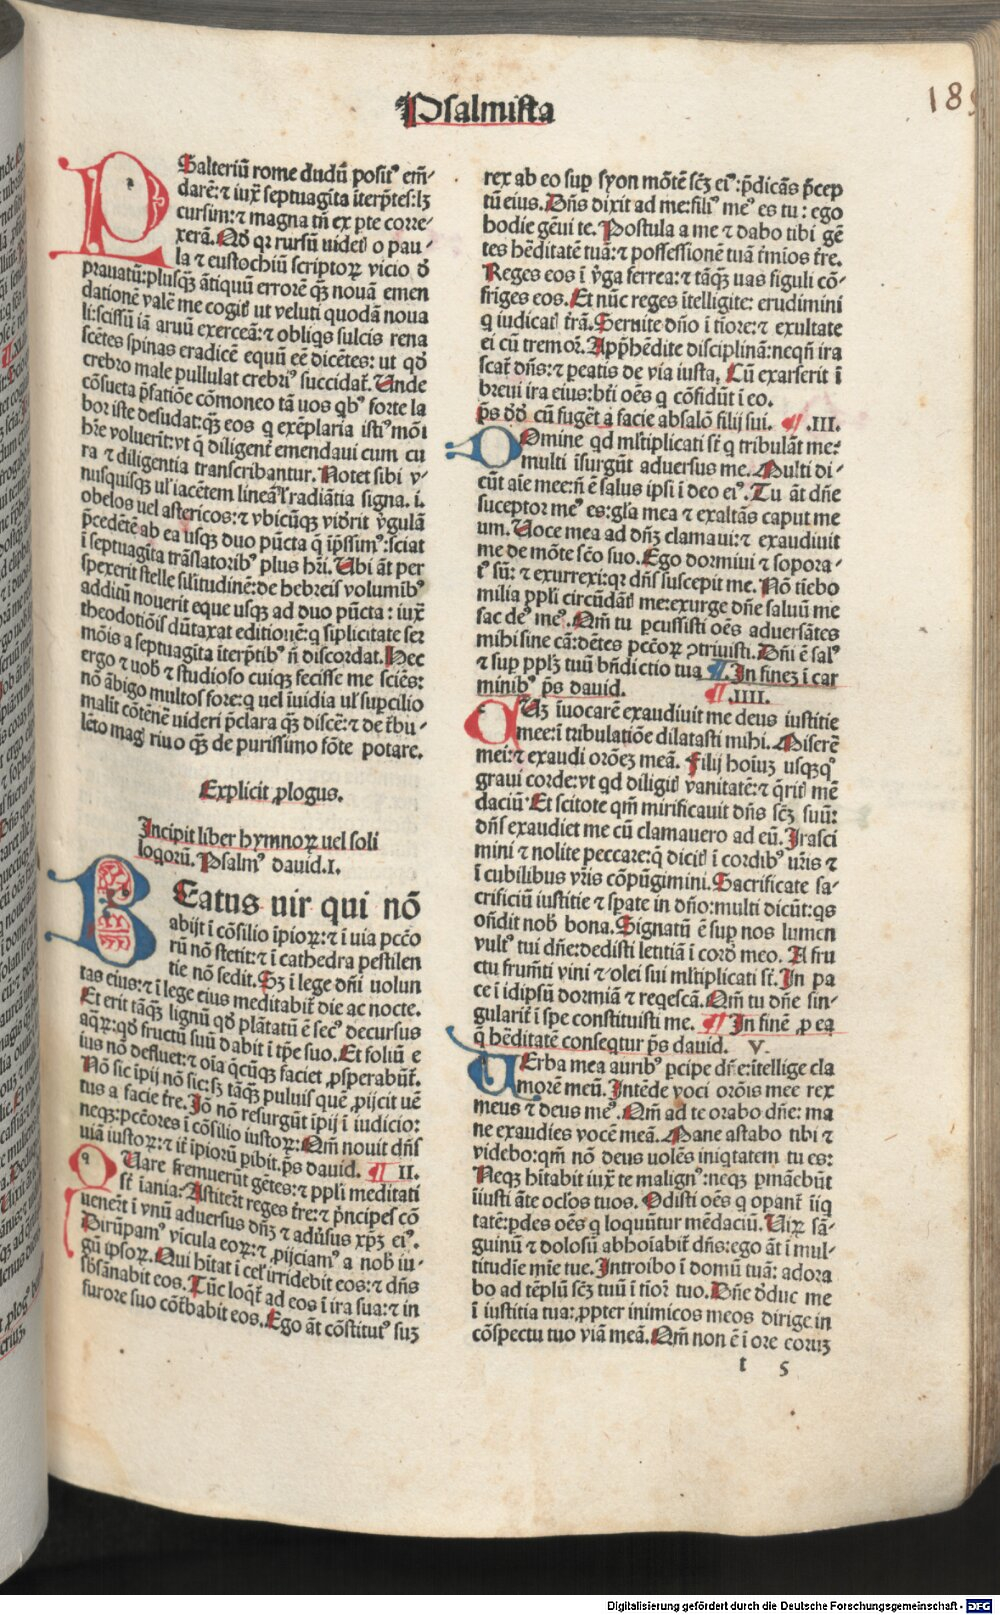 Psalmista
185
PSalteriū rome dudū posit⁹ em̄-
darē: ⁊ iuxᷓ septuagīta īterp̄tes: lꝫ
cursim: ⁊ magna tn̄ ex ꝑte corre-
xerā. Qḋ qꝛ rursū videtꝭ o pau-
la ⁊ eustochiū scriptoꝝ vicio ḋ
prauatū: plusqꝫ ātiquū errorē qꝫ nouā emen
dationē valē me cogitꝭ ut veluti quodā noua
li: scissū iā aruū exerceā: ⁊ obliqs sulcis rena
scētes spinas eradicē equū eē dicētes: ut qḋ
crebro male pullulat crebri⁹ succidat᷑. Unde
cōsueta p̄fatiōe cōmoneo tā uos qb⁹ forte la
bor iste desudat: qꝫ eos q exēplaria isti⁹mōi
hr̄e voluerīt: vt q̄ diligent᷑ emendaui cum cu
ra ⁊ diligentia transcribantur. Notet sibi v-
nusquisqꝫ ul̓ iacētem lineā l̓ radiātia signa. i.
obelos uel astericos: ⁊ vbicūqꝫ viḋrit ṽgulā
p̄cedētē ab ea usqꝫ duo pūcta q̄ īp̄ssim⁹: sciat
ī septuagīta trāslatorib⁹ plus hr̄i. Ubi āt per
spexerit stelle silitudinē: de hebreis volumīb⁹
additū nouerit eque usqꝫ ad duo pūcta: iuxᷓ
theodotiōis dūtaxat editionē: q siplicitate ser
mōis a septuagīta īterp̄tib⁹ n̄ discordat. Hec
ergo ⁊ uob̓ ⁊ studioso cuiqꝫ fecisse me sciēs:
nō ābigo multos fore: q uel īuidia ul̓ supcilio
malīt cōtēnē uideri p̄clara qꝫ discē: ⁊ de t᷑bu-
lēto magꝭ riuo qꝫ de purissimo fōte potare.
Explicit ꝓlogus.
Incipit liber hymnoꝝ uel soli
loqorū. Psalm⁹ dauid. I.
BEatus uir qui nō
abijt ī cōsilio īpioꝝ: ⁊ ī uia pccō
rū nō stetit: ⁊ ī cathedra pestilen
tie nō sedit. Sꝫ ī lege dn̄i uolun
tas eius: ⁊ ī lege eius meditabit᷑ die ac nocte.
Et erit tāqꝫ lignū qḋ plātatū ē sec⁹ decursus
aqꝝ: qḋ fructū suū dabit ī tp̄e suo. Et foliū e
ius nō defluet: ⁊ oīa qcūqꝫ faciet ꝓsperabūt᷑.
Nō sic īpij nō sic: sꝫ tāqꝫ puluis quē ꝓijcit uē
tus a facie t᷑re. Iō nō resurgūt īpij ī iudicio:
neqꝫ: pccōres ī cōsilio iustoꝝ: Qm̄ nouit dn̄s
uiā iustoꝝ: ⁊ it᷑ īpiorū ꝑibit. p̄s dauid. ¶ II.
QUare fremuerūt gētes: ⁊ ppl̓i meditati
st᷑ īania: Astiter̄t reges t᷑re: ⁊ p̄ncipes cō
uener̄t ī vnū aduersus dn̄ꝫ ⁊ adũsus xp̄ꝫ ei⁹.
Dirūpam⁹ vīcula eoꝝ: ⁊ ꝓijciam⁹ a nob̓ iu-
gū ipsoꝝ. Qui hītat ī cel̓ irridebit eos: ⁊ dn̄s
sb̄sānabit eos. Tūc loqt᷑ ad eos ī ira sua: ⁊ in
furore suo cōt᷑babit eos. Ego āt cōstitut⁹ suꝫ
rex ab eo suꝑ syon mōtē scꝫ ei⁹: p̄dicās p̄cep
tū eius. Dn̄s dixit ad me: fili⁹ me⁹ es tu: ego
hodie gēui te. Postula a me ⁊ dabo tibi gē
tes hēditatē tuā: ⁊ possessionē tuā t᷑mīos t᷑re.
Reges eos ī ṽga ferrea: ⁊ tāqꝫ uas figuli cō-
friges eos. Et nūc reges ītelligite: erudimini
q iudicatꝭ t᷑rā. Seruite dn̄o ī tīore: ⁊ exultate
ei cū tremor̄. App̄hēdite disciplinā: neqn̄ ira
scat᷑ dn̄s: ⁊ ꝑeatis de via iusta. Cū exarserit ī
breui ira eius: bt̄i oēs q cōfidūt ī eo.
p̄s ḋḋ cū fuger̄t a facie absalō filij sui. ¶ .III.
DOmine qd ml̓tiplicati st᷑ q tribulāt me:
multi īsurgūt aduersus me. Multi di-
cūt aīe mee: n̄ ē salus ipsi ī deo ei⁹. Tu āt dn̄e
susceptor me⁹ es: gl̓a mea ⁊ exaltās caput me
um. Uoce mea ad dn̄ꝫ clamaui: ⁊ exaudiuit
me de mōte sc̄o suo. Ego dormiui ⁊ sopora-
t⁹ sū: ⁊ exurrexi: qꝛ dn̄s suscepit me. Nō tīebo
milia ppl̓i circūdātꝭ me: exurge dn̄e saluū me
fac de⁹ me⁹. Qm̄ tu ꝑcussisti oēs aduersātes
mihi sine cā: dētes pccōꝝ ꝯtriuisti. Dn̄i ē sal⁹
⁊ suꝑ ppl̓ꝫ tuū bn̄dictio tua ¶. In fineꝫ ī car
minib⁹ p̄s dauid. ¶ .IIII.
CUꝫ īuocarē exaudiuit me deus iustitie
mee: ī tribulatiōe dilatasti mihi. Miserē
mei: ⁊ exaudi orōeꝫ meā. Filij hoīuꝫ usqꝫqꝫ
graui corde: vt qd diligitꝭ vanitatē: ⁊ q̄ritꝭ mē
daciū. Et scitote qm̄ mirificauit dn̄s scꝫ suū:
dn̄s exaudiet me cū clamauero ad eū. Irasci
mini ⁊ nolite peccare: q̄ dicitꝭ ī cordib⁹ ur̄is ⁊
ī cubilibus vr̄is cōpūgimini. Sacrificate sa-
crificiū iustitie ⁊ sꝑate in dn̄o: multi dicūt: qs
on̄dit nob̓ bona. Signatū ē sup nos lumen
vult⁹ tui dn̄e: dedisti letitiā ī cord̓ meo. A fru
ctu frum̄ti vini ⁊ olei sui ml̓tiplicati st᷑. In pa
ce ī idipsū dormiā ⁊ reqescā. Qm̄ tu dn̄e sin-
gularit᷑ ī spe constituisti me. ¶ In finē ꝓ ea
q̄ hēditatē conseqtur p̄s dauid. v.
UErba mea aurib⁹ ꝑcipe dn̄e: ītellige cla
morē meū. Intēde voci orōis mee rex
meus ⁊ deus me⁹. Qm̄ ad te orabo dn̄e: ma
ne exaudies vocē meā. Mane astabo tibi ⁊
videbo: qm̄ nō deus volēs iniqtatem tu es:
Neqꝫ hītabit iuxᷓ te malign⁹: neqꝫ ꝑmāebūt
īiusti āte ocl̓os tuos. Odisti oēs q oꝑant᷑ īiq
tatē: ꝑdes oēs q loquūtur mēdaciū. Uiꝝ sā-
guinū ⁊ dolosū abhoīabit᷑ dn̄s: ego āt ī mul-
titudīe mīe tue. Introibo ī domū tuā: adora
bo ad tēplū scꝫ tuū ī tīor̄ tuo. Dn̄e ḋduc me
ī iustitia tua: ꝓpter inimicos meos dirige in
cōspectu tuo viā meā. Qm̄ non ē ī ore coruꝫ
t 5
Digitalisierung gefördert durch die Deutsche Forschungsgemeinschaft - DFG